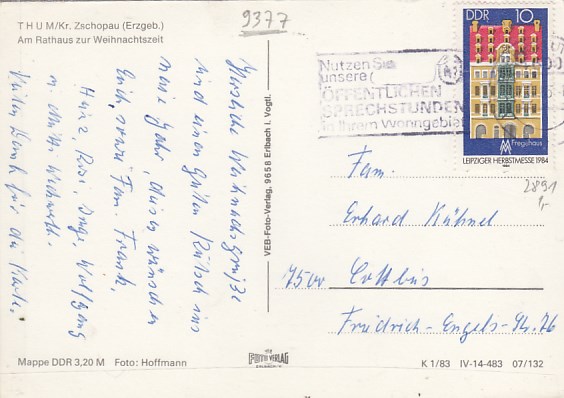 T H U M/Kr. Zschopau (Erzgeb.)
Am Rathaus zur Weihnachtszeit
9377
Herzliche Weihnachtsgrüße
und einen guten Rutsch ins
neue Jahr, dies wünschen
Euch, sowie Fam. Frank,
Heinz, Rosi, Inge, Wolfgang
u. Mutti
Vielen Dank für die Karte.
VEB-Foto-Verlag, 9658 Erlbach i. Vogtl.
Nutzen Si
unsere
ÖFFENTLICHEN
SPRECHSTUNDEN
in Ihrem Wohngebiet
DDR 10
Fregehaus
LEIPZIGER HERBSTMESSE 1984
2891
1,-
Fam.
Erhard Kühnel
7500 Cottbus
Friedrich-Engels-Str. 76
Mappe DDR 3,20 M Foto: Hoffmann
FOTO VERLAG
K 1/83 IV-14-483 07/132